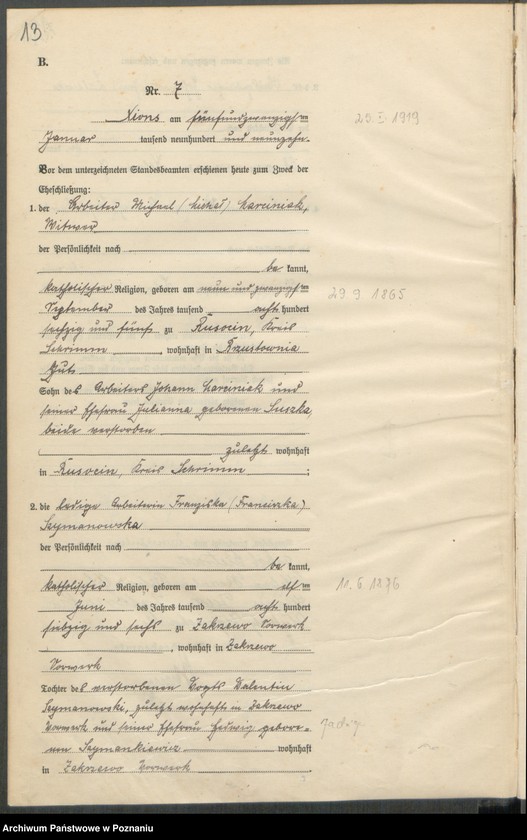 13
B.
Nr. 7
Xions am fünfundzwanzigsten
25. I 1919
Januar tausend neunhundert und neunzehn.
Vor dem unterzeichneten Standesbeamten erschienen heute zum Zweck der
Eheschließung:
1. der Arbeiter Michael (Michał) Marciniak,
Witwer
der Persönlichkeit nach
be kannt,
katholischer Religion, geboren am neun und zwanzigsten
29 9 1865
September des Jahres tausend acht hundert
sechzig und fünf zu Rusocin, Kreis
Schrimm, wohnhaft in Brzustownia
Gut
Sohn des Arbeiters Johann Marciniak und
seiner Ehefrau Julianna geborenen Suszka,
beide verstorben
zuletzt wohnhaft
in Rusocin, Kreis Schrimm ;
2. die ledige Arbeiterin Franziska (Franciszka)
Szymanowska
der Persönlichkeit nach
be kannt,
katholischer Religion, geboren am elften
11. 6 1876
Juni des Jahres tausend acht hundert
siebzig und sechs zu Zakrzewo Vorwerk
, wohnhaft in Zakrzewo
Vorwerk
Tochter des verstorbenen Vogts Valentin
Szymanowski, zuletzt wohnhaft in Zakrzewo
Vorwerk und seiner Ehefrau Hedwig gebore-
Jadwi
nen Szymankiewicz wohnhaft
in Zakrzewo Vorwerk.
Archiwum Państwowe w Poznaniu